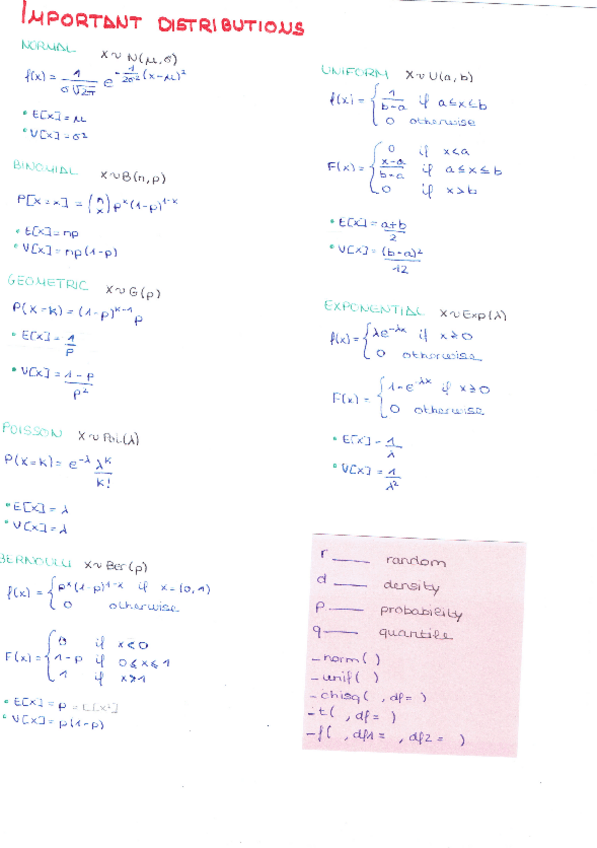 IMPORTANT DISTRIBUTIONS
NORMAL X ~ N(μ, σ)
f(x) = 1/(σ√2π) e^(-1/2σ² (x-μ)²)
• E[X] = μ
• V[X] = σ²
BINOMIAL X ~ B(n, p)
P[X=x] = (n x) p^x (1-p)^(1-x)
• E[X] = np
• V[X] = np(1-p)
GEOMETRIC X ~ G(p)
P(X=k) = (1-p)^(k-1) p
• E[X] = 1/p
• V[X] = 1-p/p²
POISSON X ~ Poi(λ)
P(X=k) = e^(-λ) λ^k/k!
• E[X] = λ
• V[X] = λ
BERNOULLI X ~ Ber(p)
f(x) = { p^x (1-p)^(1-x) if x = (0, 1)
0 otherwise
F(x) = { 0 if x < 0
1-p if 0 ≤ x ≤ 1
1 if x > 1
• E[X] = p = E[X²]
• V[X] = p(1-p)
UNIFORM X ~ U(a, b)
f(x) = { 1/b-a if a ≤ x ≤ b
0 otherwise
F(x) = { 0 if x < a
x-a/b-a if a ≤ x ≤ b
0 if x > b
• E[X] = a+b/2
• V[X] = (b-a)²/12
EXPONENTIAL X ~ Exp(λ)
f(x) = { λe^(-λx) if x ≥ 0
0 otherwise
F(x) = { 1-e^(-λx) if x ≥ 0
0 otherwise
• E[X] = 1/λ
• V[X] = 1/λ²
r ____ random
d ____ density
p ____ probability
q ____ quantile
_norm( )
_unif( )
_chisq( , df= )
_t( , df= )
_f( , df1= , df2= )